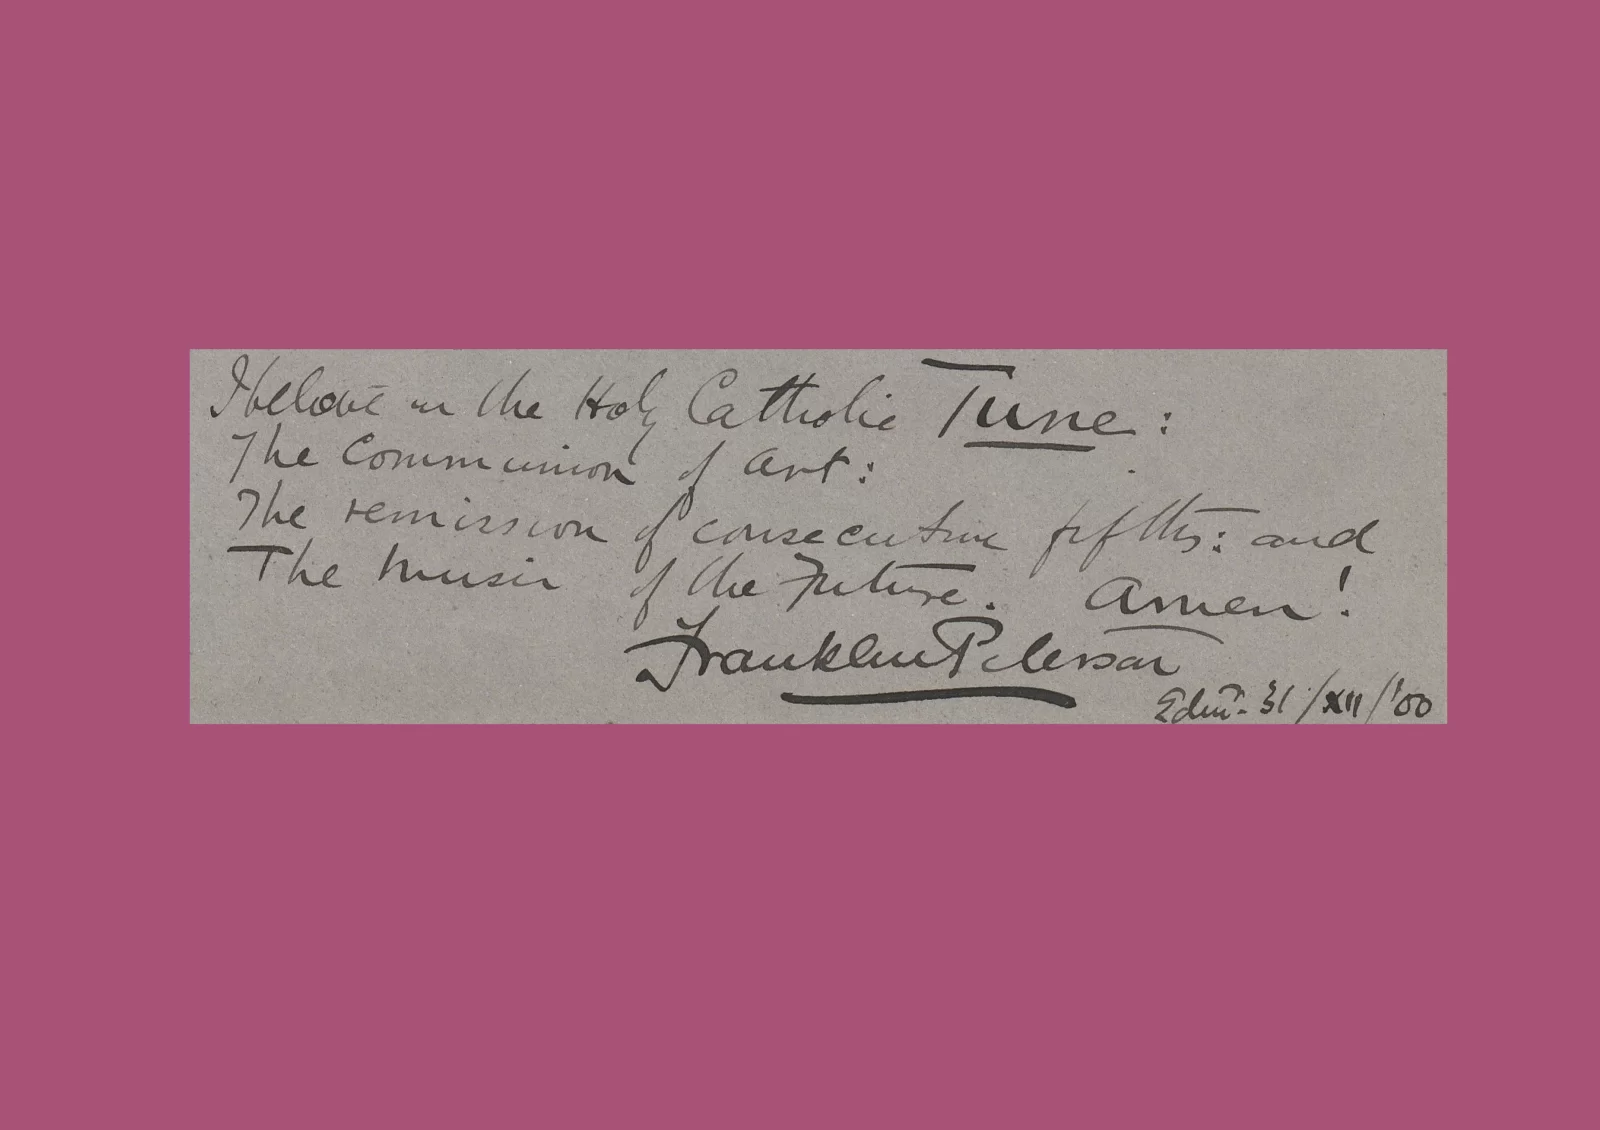 I believe in the Holy Catholic Tune:
The Communion of Art:
The remission of consecutive fifths: and
The Music of the Future. Amen!
Franklin Peterson
Edinr. 31/XII/'00